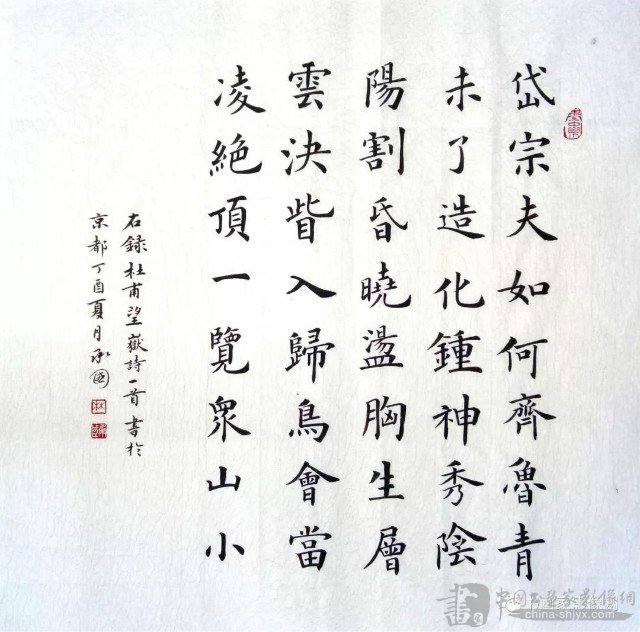 岱宗夫如何齊魯青
未了造化鍾神秀陰
陽割昏曉盪胸生層
雲決眥入歸鳥會當
凌絶頂一覽衆山小
右録杜甫望嶽詩一首書於
京都丁酉夏月承國
書
china-shjyx.com